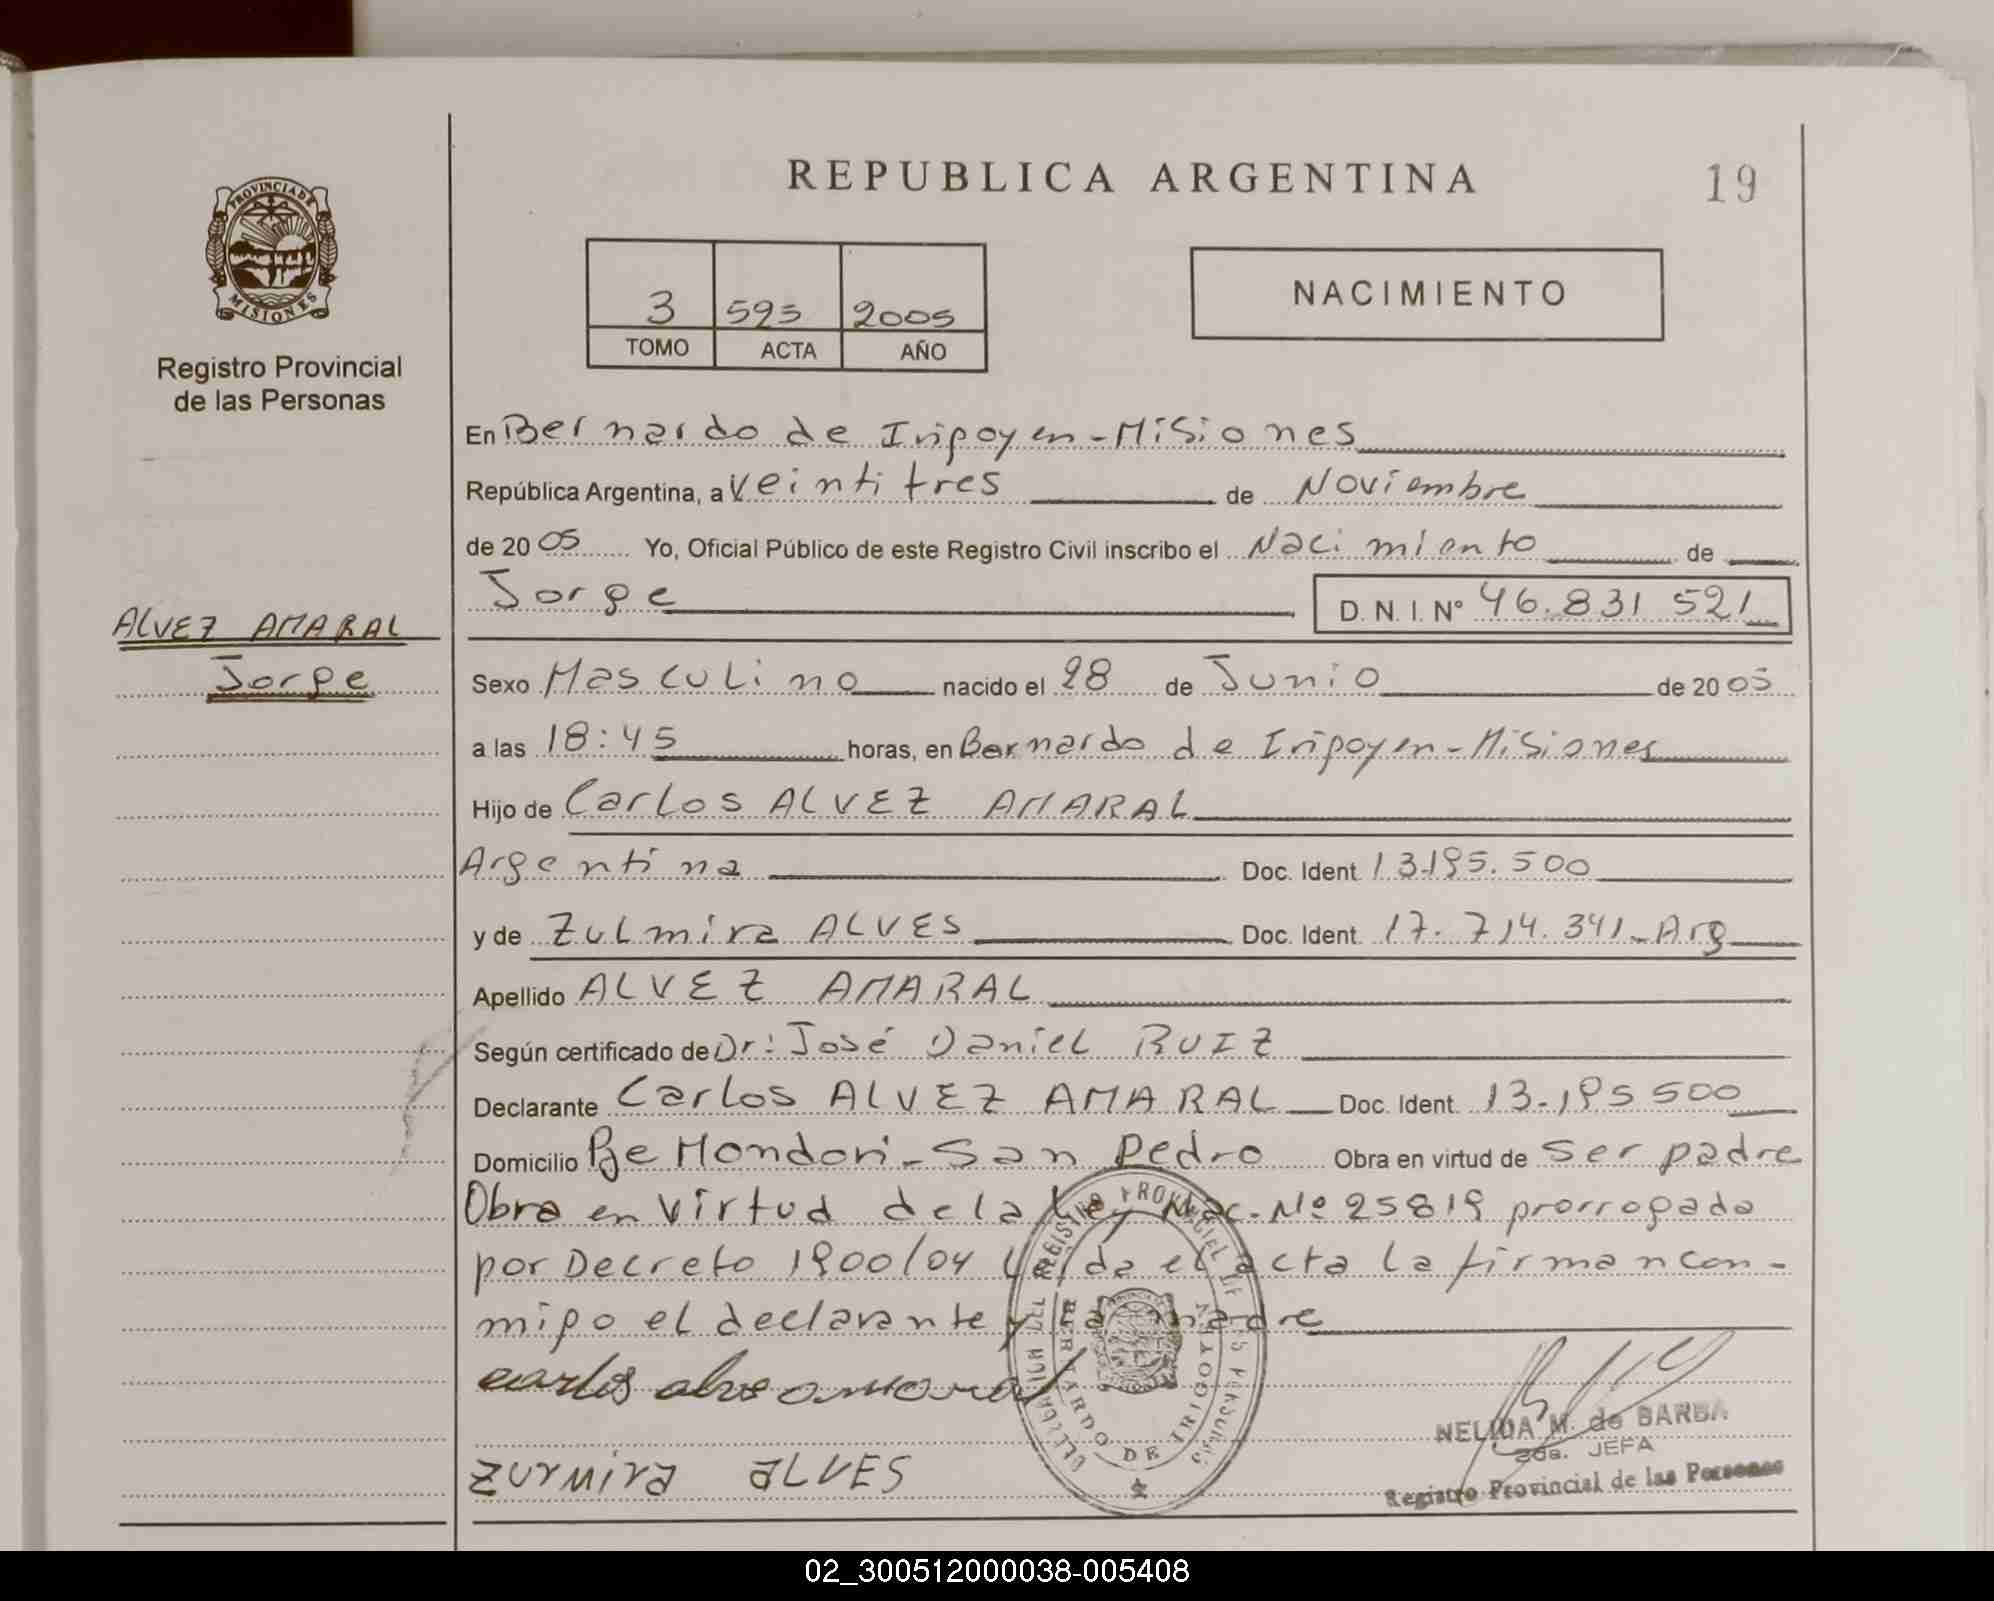 REPUBLICA ARGENTINA
19
PROVINCIA DE
MISIONES
Registro Provincial
de las Personas
3 593 2005
TOMO ACTA AÑO
NACIMIENTO
En Bernardo de Iripoyen - Misiones
República Argentina, a veintitres de Noviembre
de 2005 Yo, Oficial Público de este Registro Civil inscribo el Nacimiento de
Jorge D. N. I. Nº 46.831 521
ALVEZ AMARAL
Jorge
Sexo Masculino nacido el 28 de Junio de 2005
a las 18:45 horas, en Bernardo de Iripoyen - Misiones
Hijo de Carlos ALVEZ AMARAL
Argentina Doc. Ident. 13.195.500
y de Zulmira ALVES Doc. Ident. 17.714.341 - Arg
Apellido ALVEZ AMARAL
Según certificado de Dr: José Daniel RUIZ
Declarante Carlos ALVEZ AMARAL Doc. Ident. 13.195 500
Domicilio Pje Mondori - San Pedro Obra en virtud de ser padre
Obra en virtud de la Ley Nac. Nº 25819 prorrogada
por Decreto 1900/04 Leída el acta la firman con-
migo el declarante y la madre
carlos alve amaral
zurmira aLVES
DELEGACION DEL REGISTRO PROVINCIAL DE LAS PERSONAS
BERNARDO DE IRIGOYEN
NELIDA M. de BARBA
2da. JEFA
Registro Provincial de las Personas
02_300512000038-005408